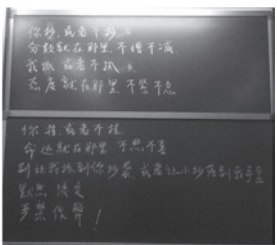 你抄,或者不抄
分数就在那里 不增不减
我抓 或者不抓
态度就在那里 不紧不怠
你挂,或者不挂
命运就在那里 不悲不喜
别让我抓到你抄袭 或者让小抄落到我手里
默然 淡定
多做 作弊!